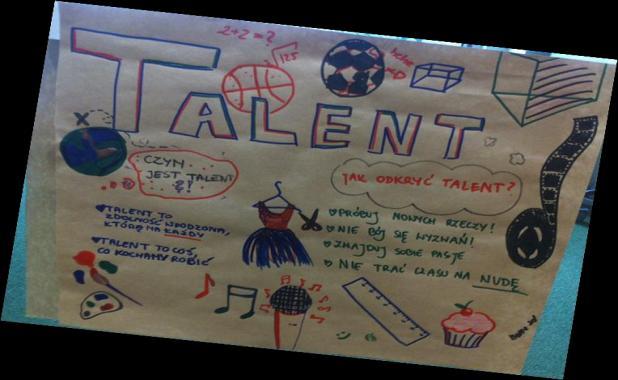 2+2=?
TALENT
125
X
CZYM
JEST TALENT
?!
JAK ODKRYĆ TALENT?
TALENT TO
ZDOLNOŚĆ WRODZONA,
KTÓRĄ MA KAŻDY
TALENT TO COŚ,
CO KOCHAMY ROBIĆ
PRÓBUJ NOWYCH RZECZY!
NIE BÓJ SIĘ WYZWAŃ!
ZNAJDUJ SOBIE PASJE
NIE TRAĆ CZASU NA NUDĘ